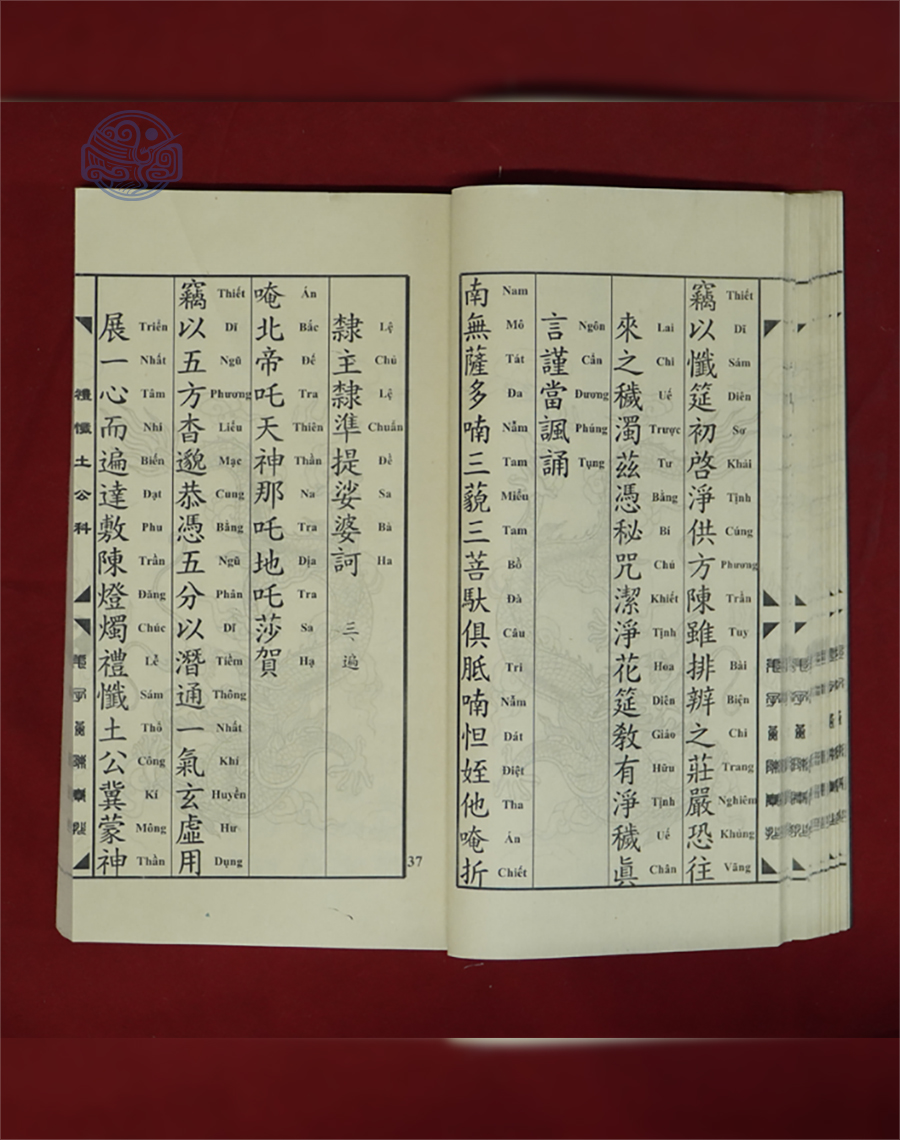 竊以懺筵初啓淨供方陳雖排辨之莊嚴恐往
Thiết Dĩ Sám Diên Sơ Khải Tịnh Cúng Phương Trần Tuy Bài Biện Chi Trang Nghiêm Khủng Vãng
來之穢濁茲憑秘咒潔淨花筵敎有淨穢眞
Lai Chi Uế Trược Tư Bằng Bí Chú Khiết Tịnh Hoa Diên Giáo Hữu Tịnh Uế Chân
言謹當諷誦
Ngôn Cẩn Đương Phúng Tụng
南無薩多喃三藐三菩馱俱胝喃怛姪他唵折
Nam Mô Tát Đa Nẫm Tam Miểu Tam Bồ Đà Câu Tri Nẫm Dát Điệt Tha Án Chiết
隸主隸準提娑婆訶 三遍
Lệ Chủ Lệ Chuẩn Đề Sa Bà Ha
唵北帝吒天神那吒地吒莎賀
Án Bắc Đế Tra Thiên Thần Na Tra Địa Tra Sa Hạ
竊以五方杳邈恭憑五分以潛通一氣玄虛用
Thiết Dĩ Ngũ Phương Liểu Mạc Cung Bằng Ngũ Phân Dĩ Tiềm Thông Nhất Khí Huyền Hư Dụng
展一心而遍達敷陳燈燭禮懺土公冀蒙神
Triển Nhất Tâm Nhi Biến Đạt Phu Trần Đăng Chúc Lễ Sám Thổ Công Kí Mông Thần
禮懺土公科
37